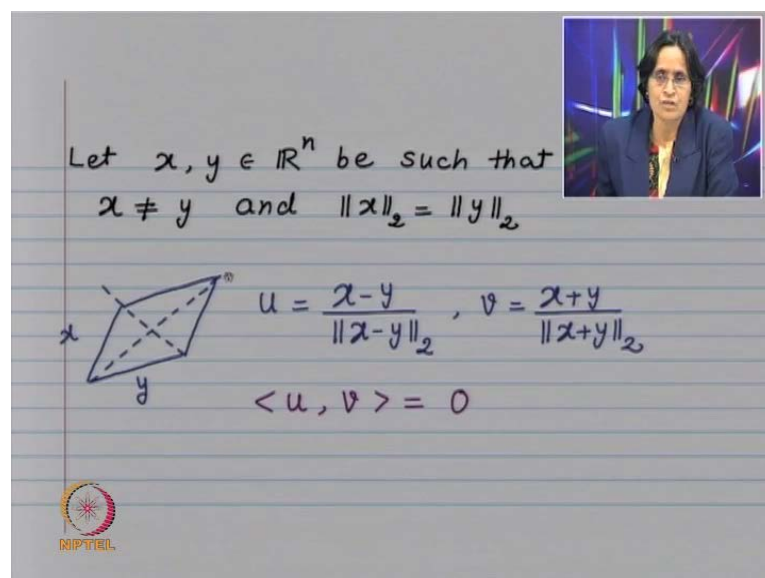 Let x, y ∈ ℝⁿ be such that
x ≠ y and ‖x‖₂ = ‖y‖₂
x
y
u = x-y / ‖x-y‖₂ , v = x+y / ‖x+y‖₂
<u, v> = 0
NPTEL